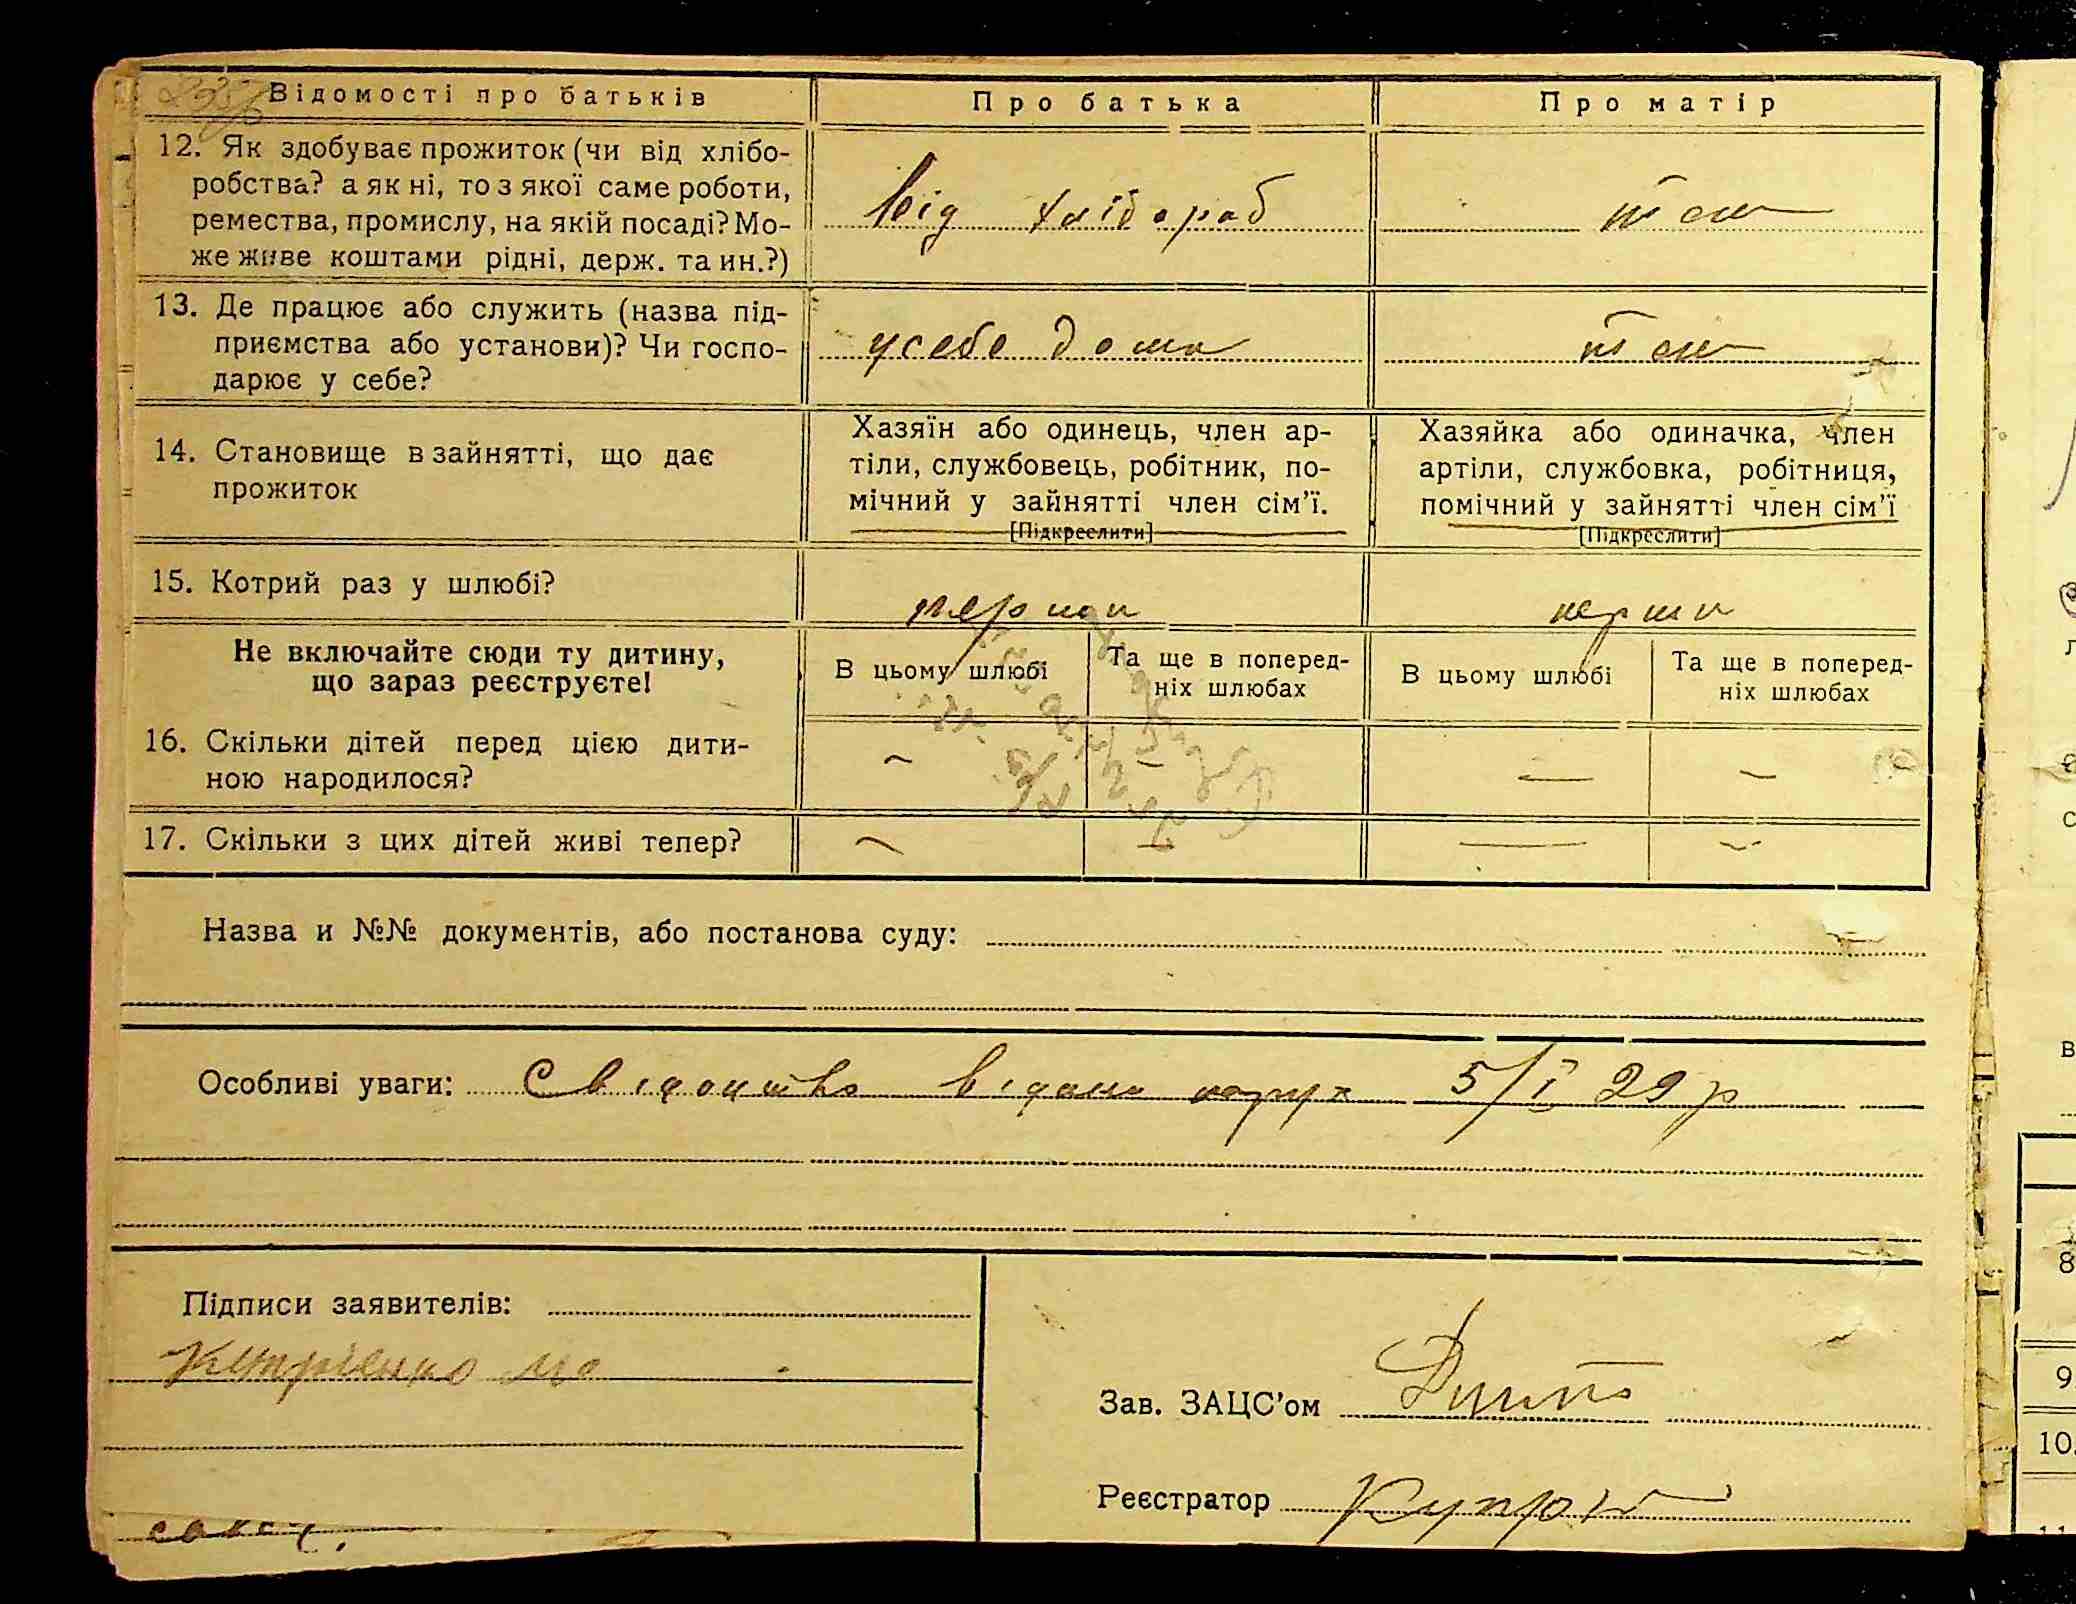 Відомості про батьків
Про батька
Про матір
12. Як здобуває прожиток (чи від хлібо-
робства? а як ні, то з якої саме роботи,
ремества, промислу, на якій посаді? Мо-
же живе коштами рідні, держ. та ин.?)
від хлібороб
13. Де працює або служить (назва під-
приємства або установи)? Чи госпо-
дарює у себе?
усебе дома
14. Становище в зайнятті, що дає
прожиток
Хазяїн або одинець, член ар-
тіли, службовець, робітник, по-
мічний у зайнятті член сім’ї.
[Підкреслити]
Хазяйка або одиначка, член
артіли, службовка, робітниця,
помічний у зайнятті член сім’ї
[Підкреслити]
15. Котрий раз у шлюбі?
перши
перши
Не включайте сюди ту дитину,
що зараз реєструєте!
В цьому шлюбі
Та ще в поперед-
ніх шлюбах
В цьому шлюбі
Та ще в поперед-
ніх шлюбах
16. Скільки дітей перед цією дити-
ною народилося?
17. Скільки з цих дітей живі тепер?
Назва и №№ документів, або постанова суду:
Особливі уваги: Свідоцтво відано 5/I 29 р
Підписи заявителів:
Зав. ЗАЦС’ом
Реєстратор
8
9.
10.